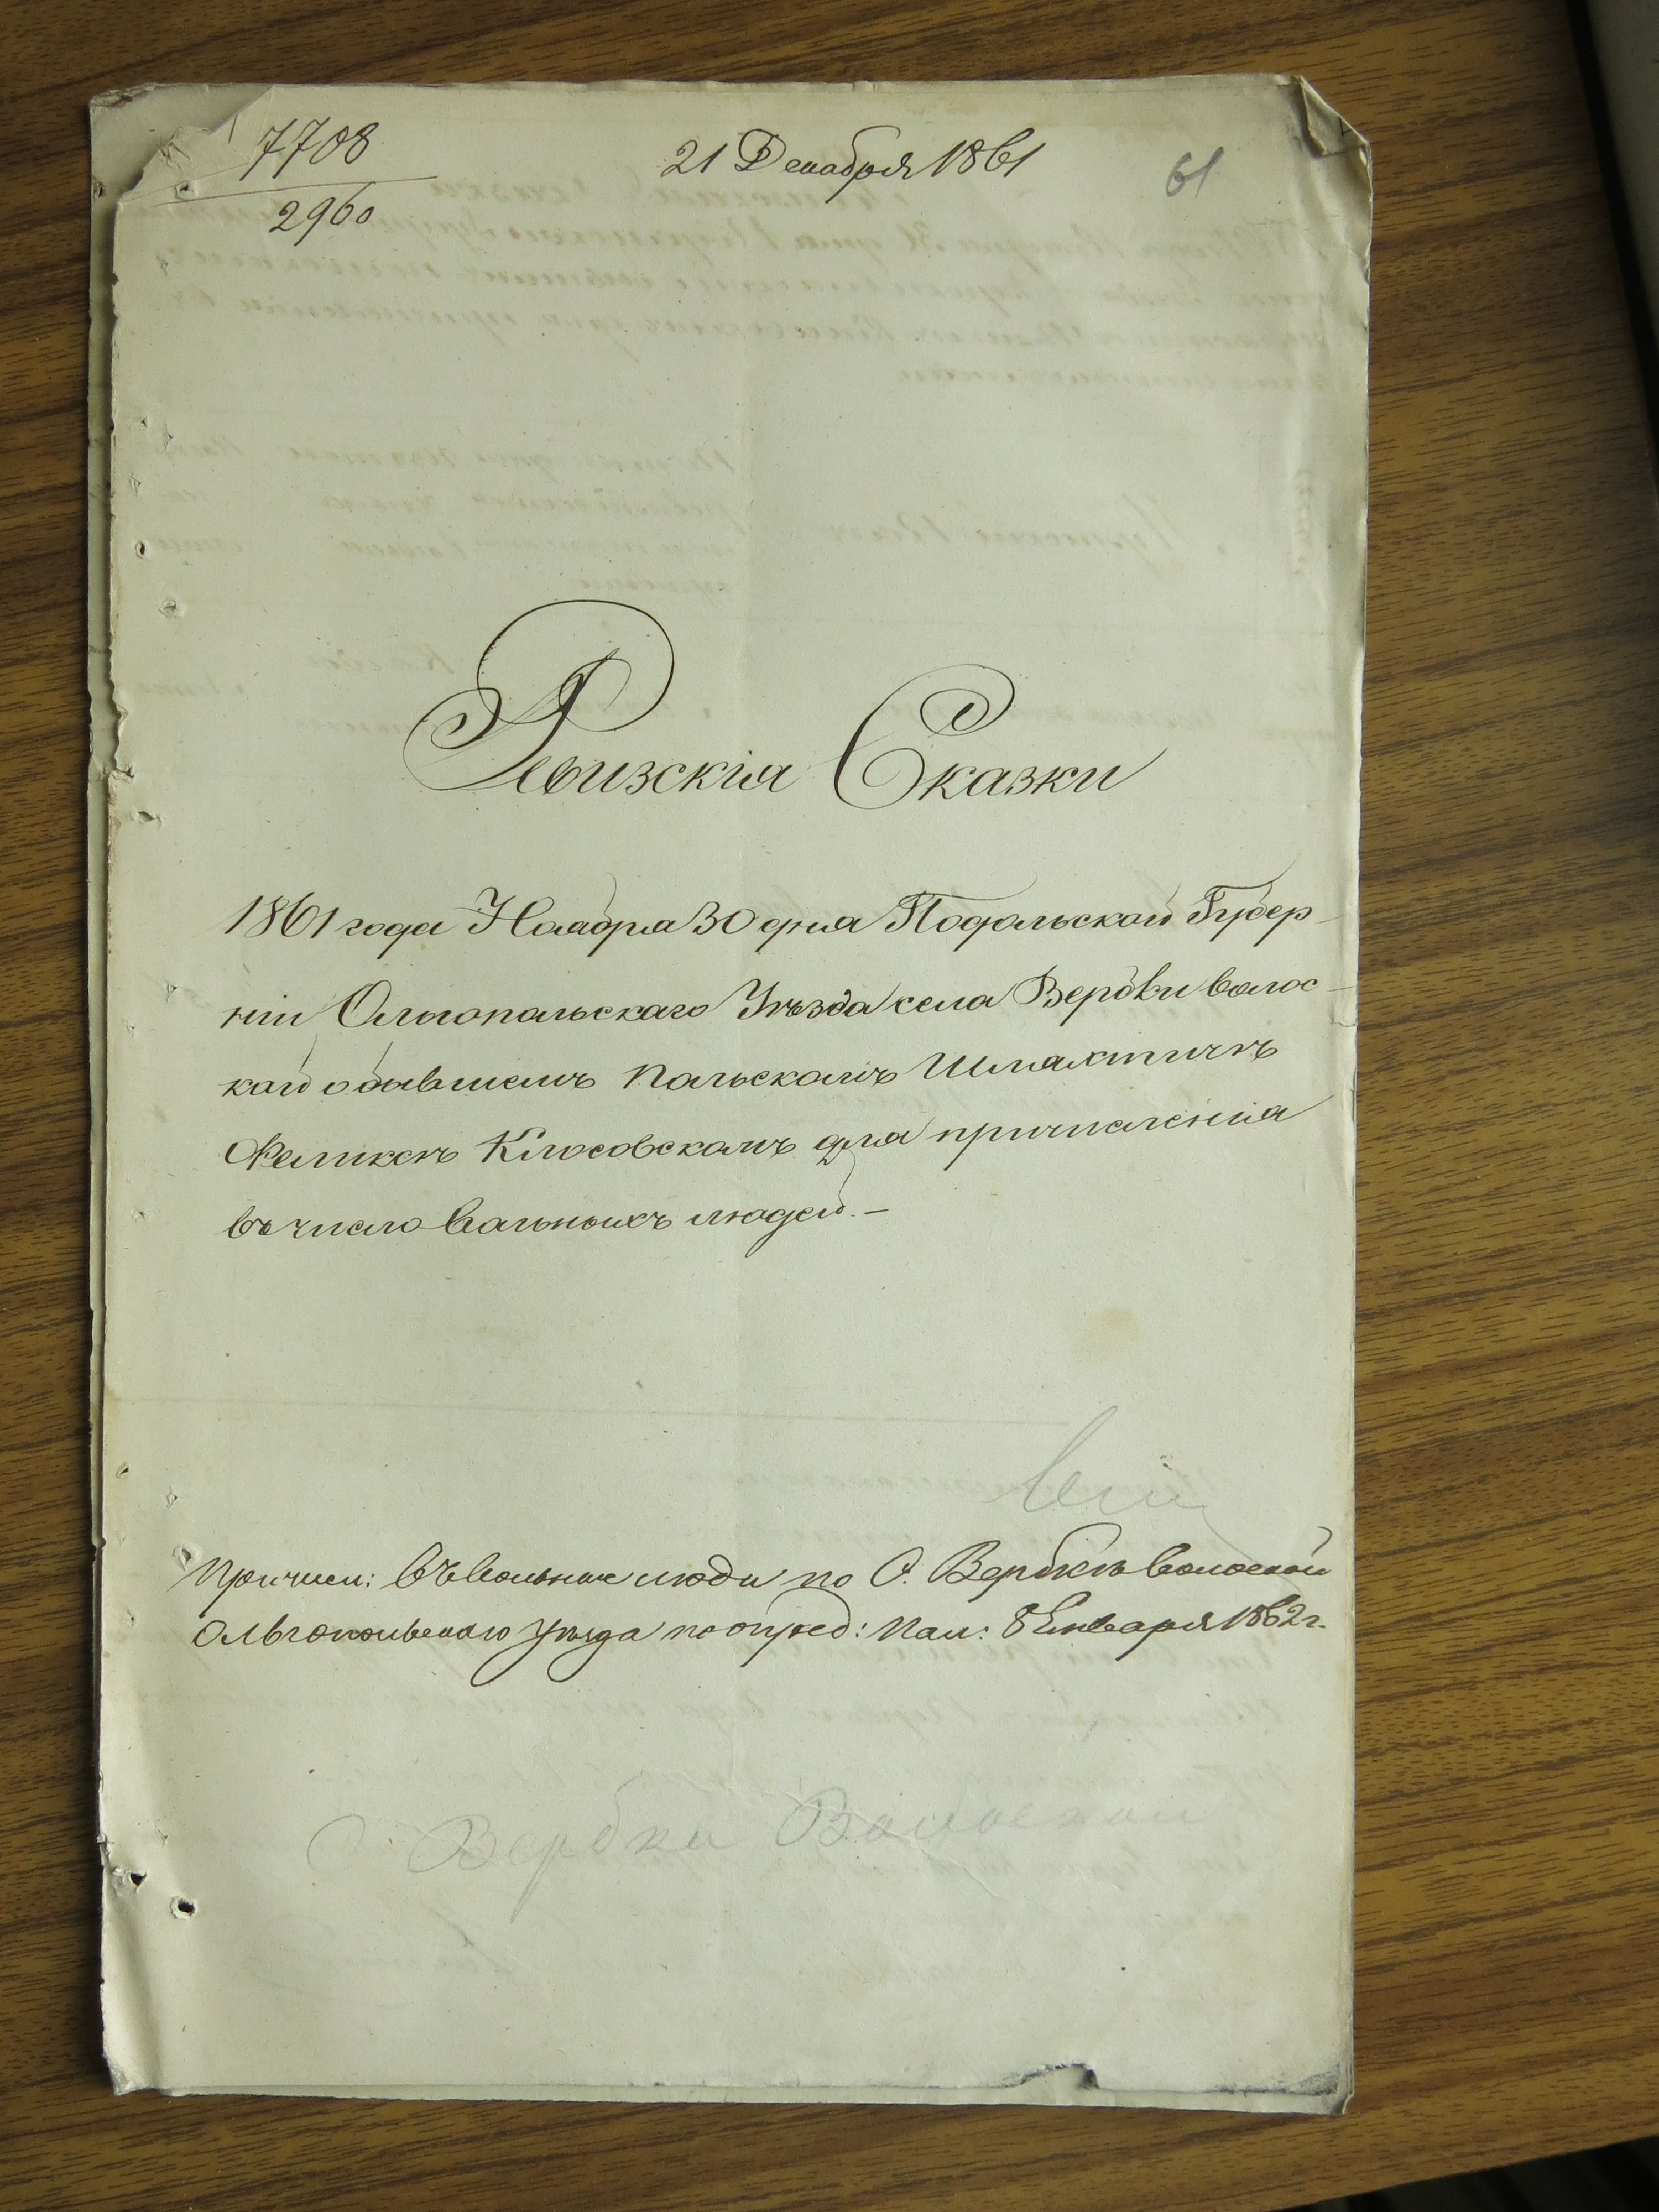 7708
2960
21 Декабря 1861
61
Ревизскія Сказки
1861 года Ноября 30 дня Подольской Губер-
ніи Ольгопольскаго Уѣзда села Вербки волос-
кой о бывшемъ Польскомъ Шляхтичѣ
Феликсѣ Клосовскомъ для причисленія
въ число вольныхъ людей. –
Причисл: въ вольные люди по С. Вербкѣ волоской
Ольгопольскаго уѣзда по опред: Пал: 8 Генваря 1862 г.
С. Вербки Волоской